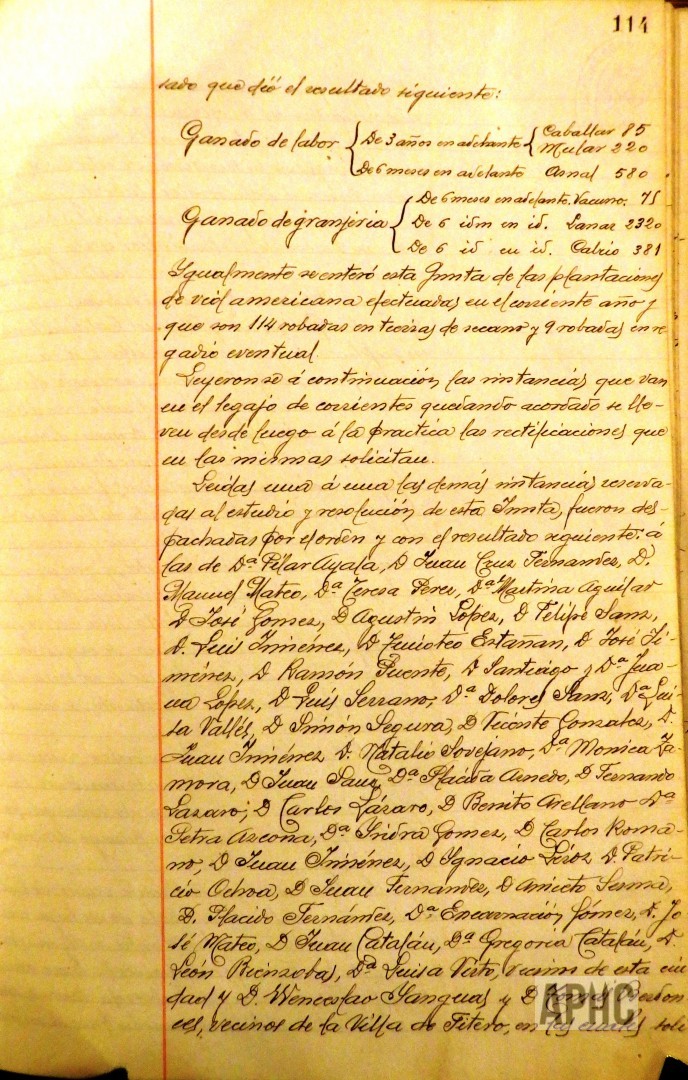 114
sado que dió el resultado siguiente:
Ganado de labor { De 3 años en adelante { Caballar 85
Mular 220
De 6 meses en adelante Asnal 580
Ganado de granjeria { De 6 meses en adelante. Vacuno. 75
De 6 idm en id. Lanar 2320
De 6 id en id. Cabrio 381
Ygualmente se enteró esta Junta de las plantaciones
de vid americana efectuadas en el corriente año y
que son 114 robadas en tierras de secano y 9 robadas en re
gadio eventual.
Leyeronse á continuación las instancias que van
en el legajo de corrientes quedando acordado se lle-
ven desde luego á la practica las rectificaciones que
en las mismas solicitan.
Leidas una á una las demás instancias reserva-
das al estudio y resolución de esta Junta, fueron des-
pachadas por el orden y con el resultado siguiente: á
las de Dª Pilar Ayala, D Juan Cruz Fernandez, D.
Manuel Mateo, Dª Teresa Perez, Dª Martina Aguilar
D José Gomez, D Agustin Lopez, D Felipe Sanz,
D. Luis Jiménez, D Estañan, D José Ji-
ménez, D Ramón Puente, D Santiago y Dª Jua-
na Lopez, D Luís Serrano, Dª Dolores Sanz, Dª Lui-
sa Vallés, D Simón Segura, D Vicente Gonzalez, D.
Juan Jiménez D. Natalio Sovejano, Dª Monica Za-
mora, D Juan Sanz, Dª Plácida Arnedo, D Fernando
Lazaro, D Carlos Lázaro, D Benito Arellano Dª
Petra Ascona, Dª Ysidra Gomez, D Carlos Roma-
no, D Juan Jiménez, D Ignacio D. Patri-
cio Ochoa, D Juan Fernandez, D Aniceto Sesma,
D. Placido Fernández, Dª Encarnación Gómez, D. Jo
sé Mateo, D Juan Catalán, Dª Gregoria Catalán, D.
León Rinzobas, Dª Luisa Virto, vecinos de esta ciu
dad y D. Wenceslao Yanguas y D
vecinos de la Villa de Fitero, en las cuales soli
APHC